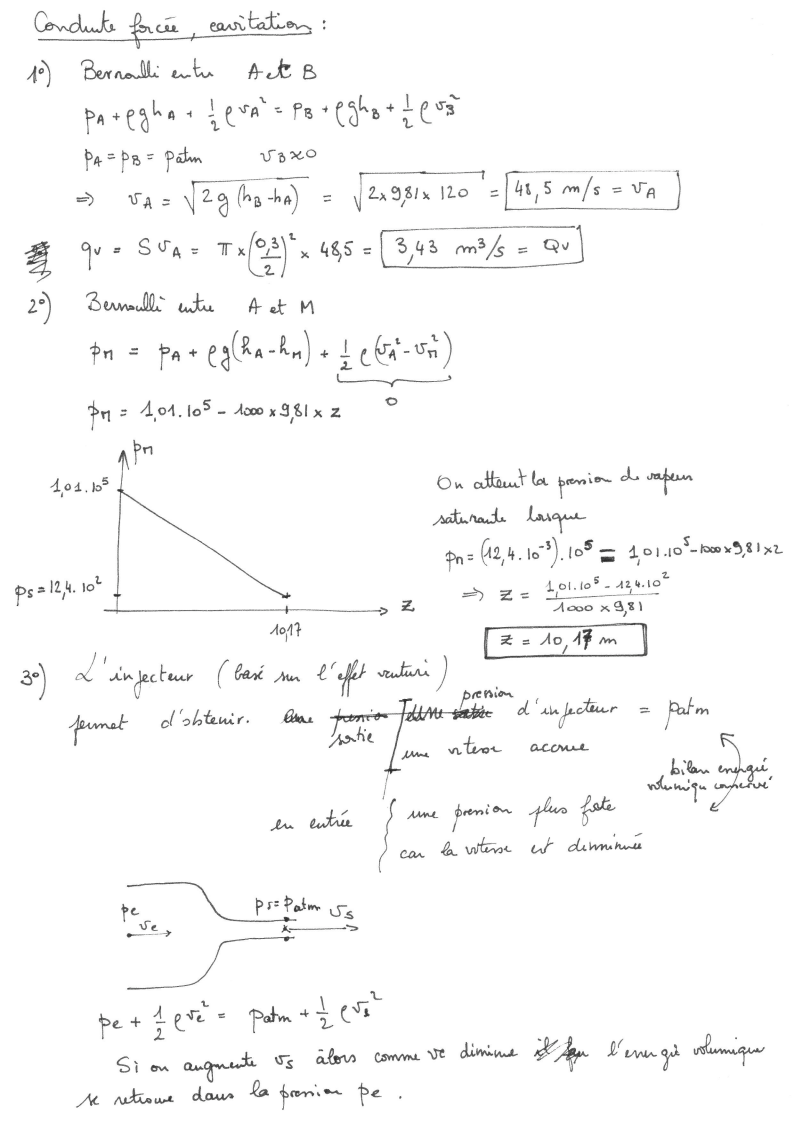 Conduite forcée, cavitation :
1°) Bernoulli entre A et B
pA + ρghA + 1/2 ρvA² = pB + ρghB + 1/2 ρvB²
pA = pB = patm vB≈0
⇒ vA = √(2g(hB-hA)) = √(2x9,81x120) = 48,5 m/s = vA
qv = SvA = π x (0,3/2)² x 48,5 = 3,43 m³/s = Qv
2°) Bernoulli entre A et M
pM = pA + ρg(hA-hM) + 1/2 ρ(vA²-vM²)
0
pM = 1,01.10⁵ - 1000 x 9,81 x z
pM
1,01.10⁵
ps = 12,4.10²
10,17
z
On atteint la pression de vapeur
saturante lorsque
pM = (12,4.10⁻³).10⁵ = 1,01.10⁵-1000x9,81xz
⇒ z = (1,01.10⁵ - 12,4.10²)/(1000 x 9,81)
z = 10,17 m
3°) L'injecteur (basé sur l'effet venturi)
permet d'obtenir.
sortie
pression d'injecteur = patm
une vitesse accrue
bilan energie
volumique conservé
en entrée { une pression plus forte
car la vitesse est dimminuée
pe
ve
ps=patm
vs
pe + 1/2 ρve² = patm + 1/2 ρvs²
Si on augmente vs alors comme ve diminue l'energie volumique
se retrouve dans la pression pe.